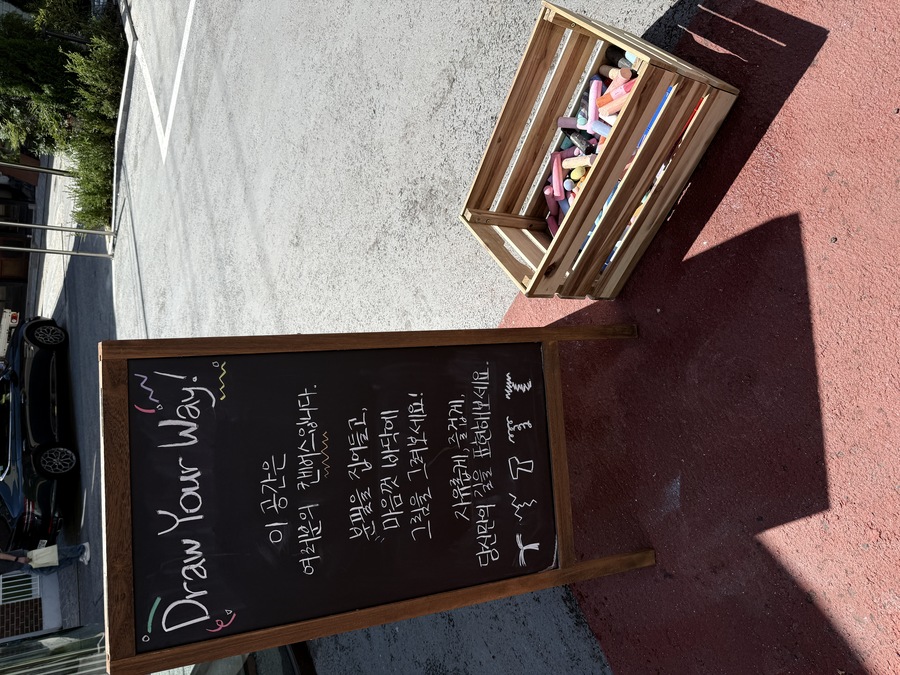 Draw Your Way!
이 공간은
여러분의 캔버스입니다.
분필을 집어들고,
마음껏 바닥에
그림을 그려보세요!
자유롭게, 즐겁게,
당신만의 길을 표현해보세요.